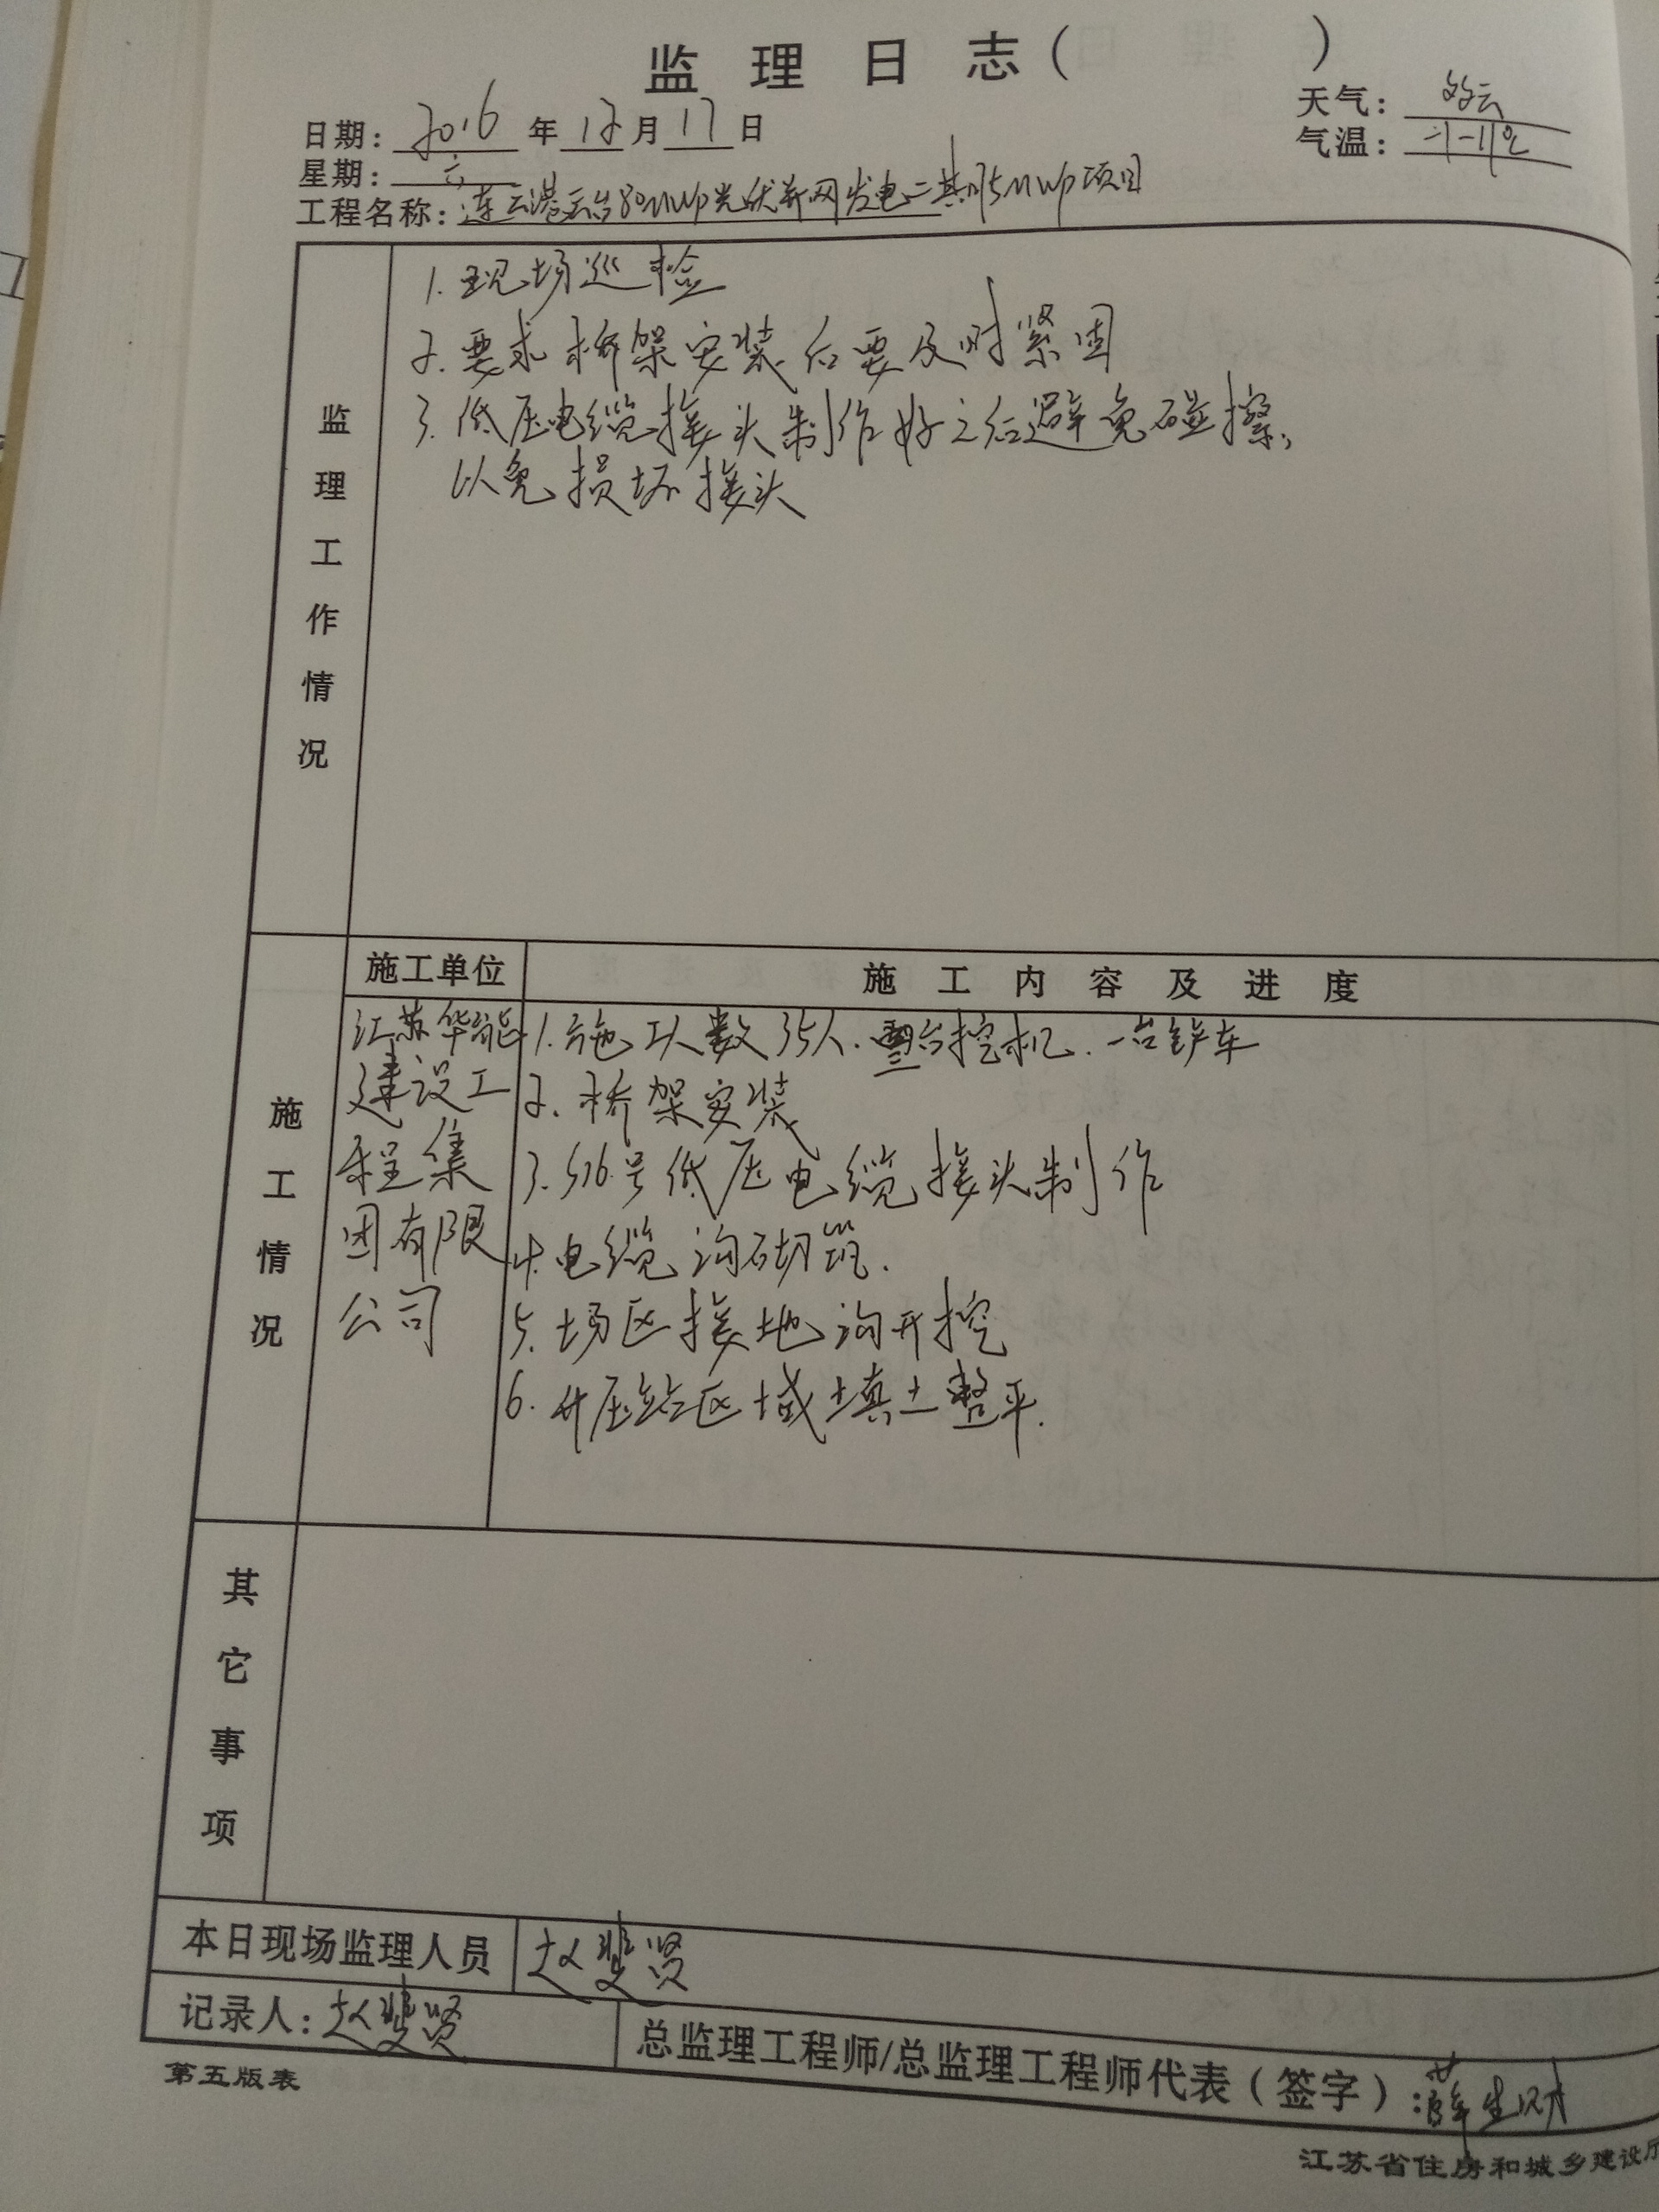 监理日志（ ）
日期：2016年12月17日
天气：多云
星期：六
气温：
工程名称：连云港云台80MWp光伏并网发电二期15MWp项目
监理工作情况
1.现场巡检
2.要求桥架安装后要及时紧固
3.低压电缆接头制作好之后避免碰擦,
以免损坏接头
施工单位
施工内容及进度
施工情况
江苏华能
建设工
程集
团有限
公司
1.施工人数35人.台挖机.一台铲车
2.桥架安装
3.5#6.号低压电缆接头制作
4.电缆沟砌筑.
5.场区接地沟开挖
6.升压站区域填土整平.
其它事项
本日现场监理人员 赵斐贤
记录人：赵斐贤
总监理工程师/总监理工程师代表（签字）：薛生财
第五版表
江苏省住房和城乡建设厅